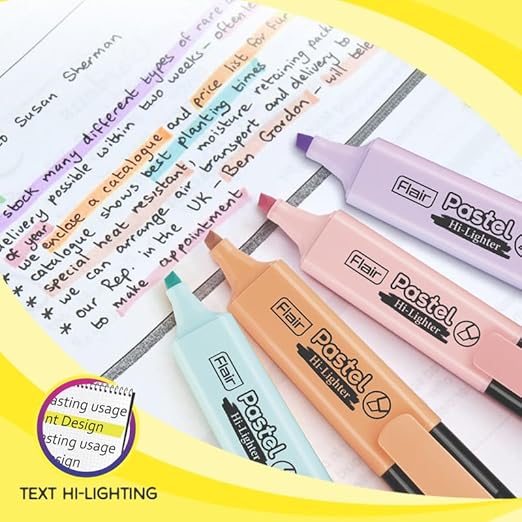 to Susan Sherman
stock many different types of rare
delivery possible within two weeks – often
of year
* we enclose a catalogue and price list for
* catalogue shows best planting times
special heat resistant, moisture retaining
* we can arrange air transport and delivery to
* our Rep. in the UK – Ben Gordon – will
to make appointment
Flair Pastel Hi-Lighter
Flair Pastel Hi-Lighter
Flair Pastel Hi-Lighter
Flair Pastel Hi-Lighter
asting usage
nt Design
asting usage
sign
TEXT HI-LIGHTING